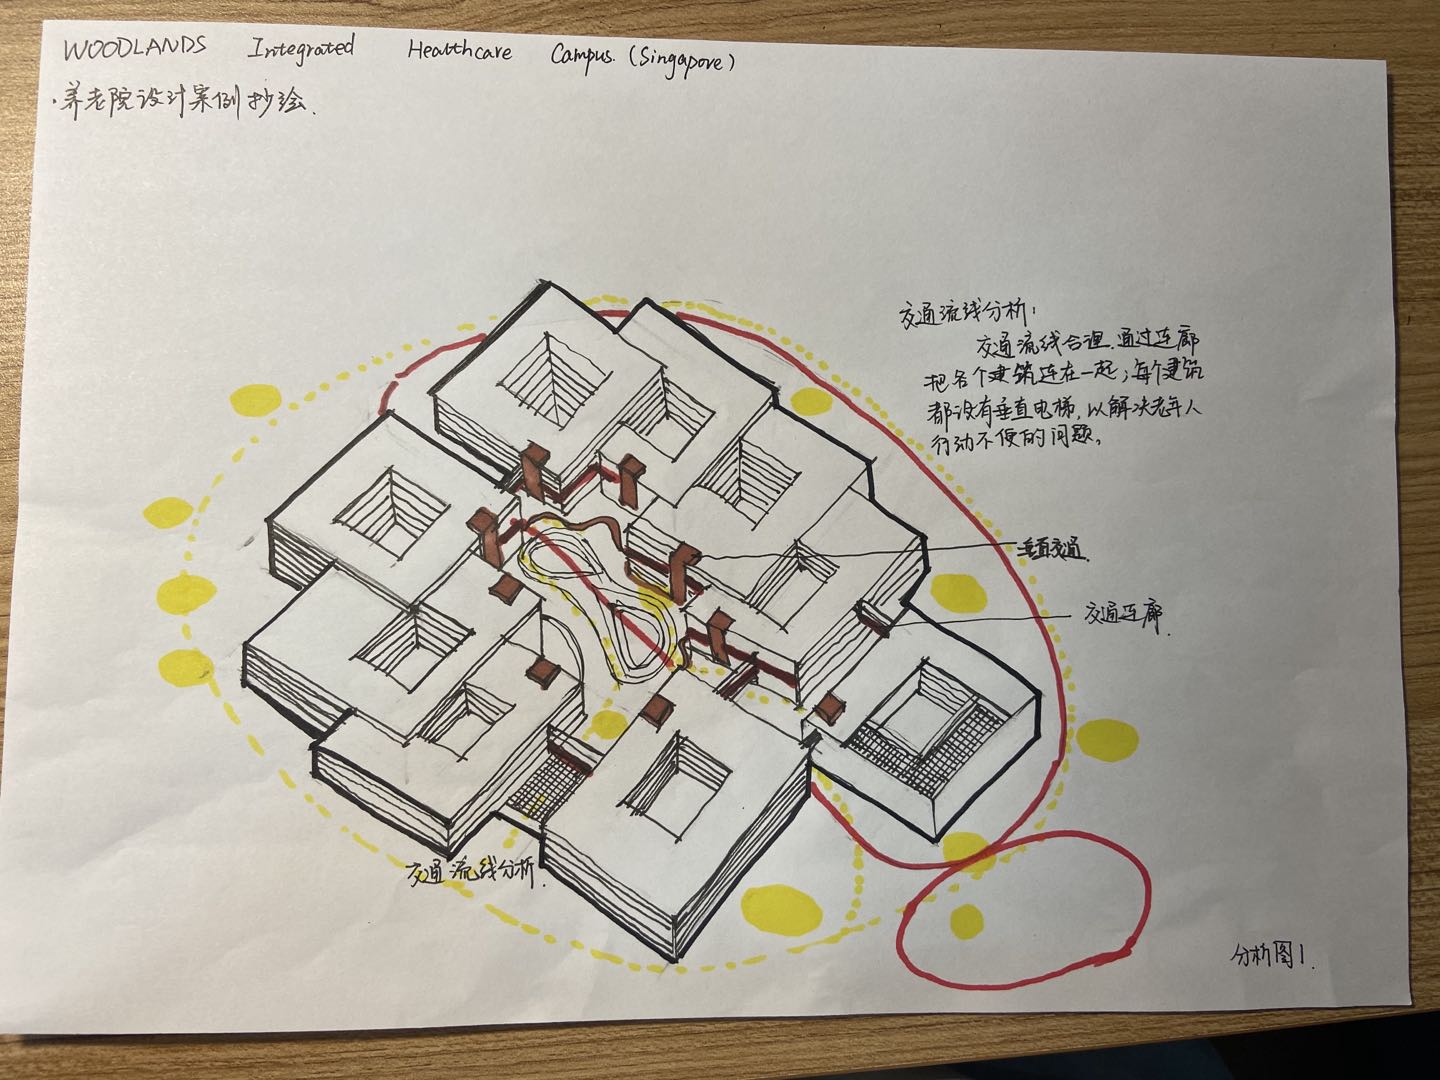 WOODLANDS Integrated Healthcare Campus. (Singapore)
·养老院设计案例抄绘.
交通流线分析:
交通流线合理.通过连廊
把各个建筑连在一起;每个建筑
都设有垂直电梯,以解决老年人
行动不便的问题。
垂直交通
交通连廊.
交通流线分析.
分析图1.